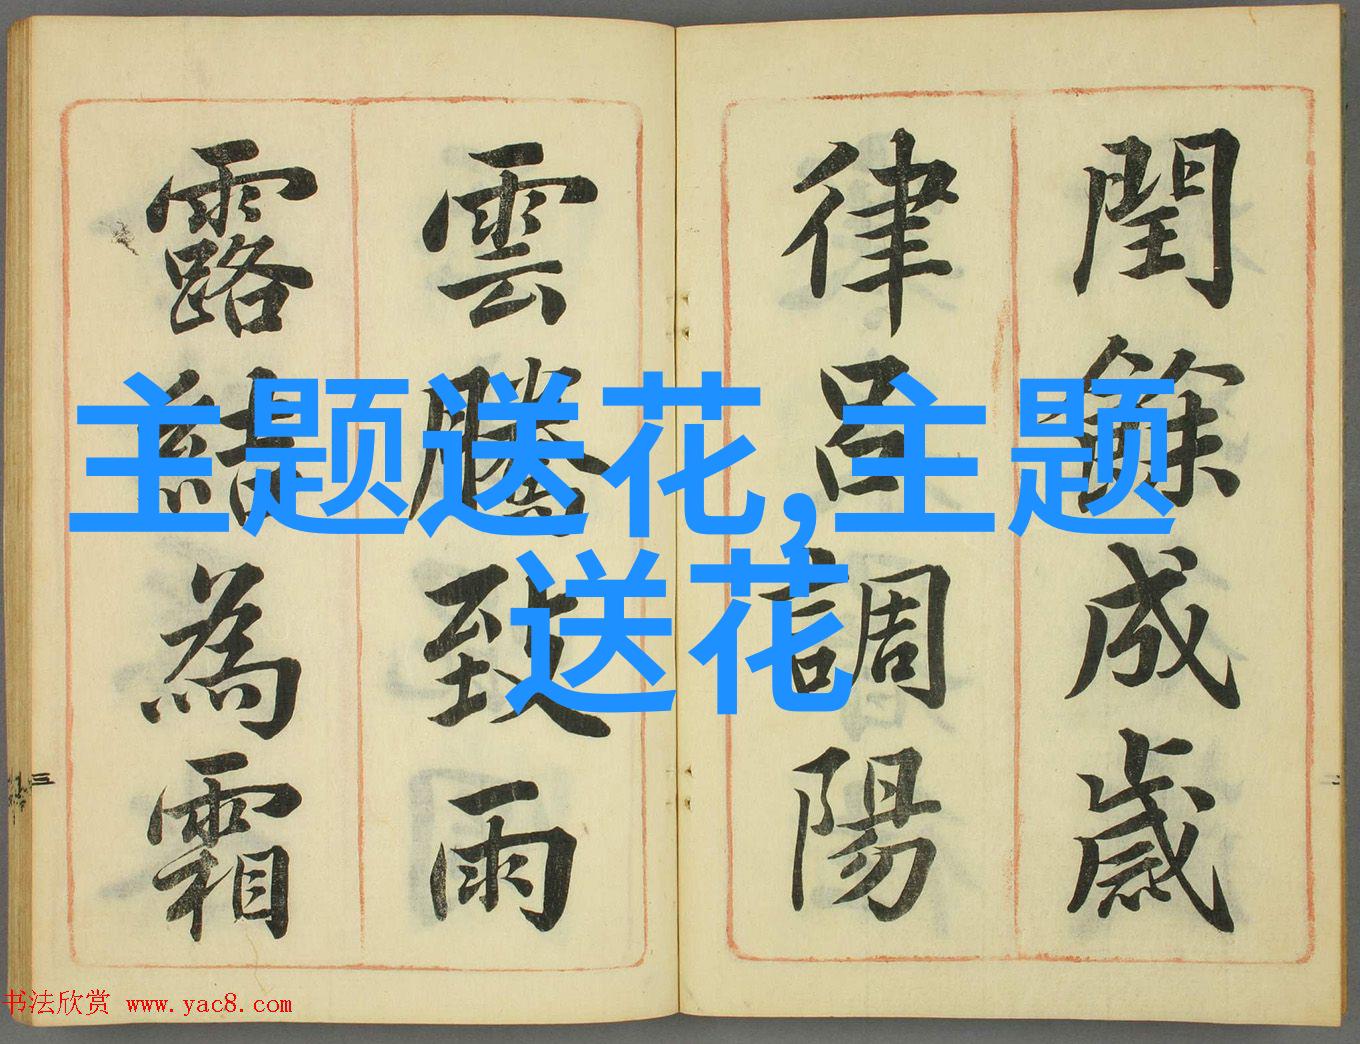 閏餘成歲
律呂調陽
雲騰致雨
露結為霜
主题送花,主题
送花
三
二
书法欣赏 www.yac8.com